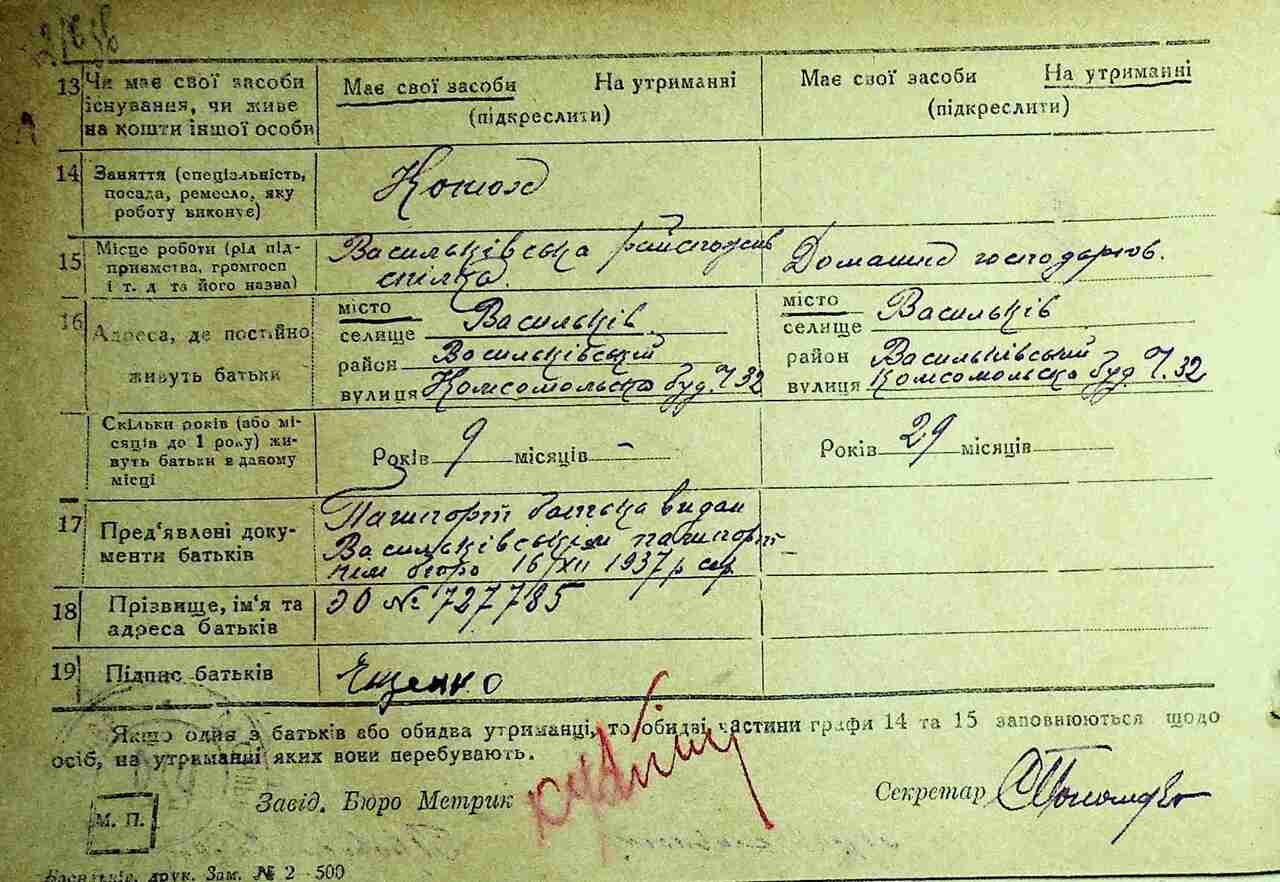 13 Чи має свої засоби існування, чи живе на кошти іншої особи
Має свої засоби На утриманні
(підкреслити)
Має свої засоби На утриманні
(підкреслити)
14 Заняття (спеціальність, посада, ремесло, яку роботу виконує)
15 Місце роботи (рід підприємства, громгосп і т. д та його назва)
Васильківська
спілка.
Домашнє господартов.
16 Адреса, де постійно живуть батьки
місто
селище Васильків
район Васильківський
вулиця Комсомольска буд. Ч. 32
місто
селище Васильків
район Васильківський
вулиця Комсомольска буд. Ч. 32
Скільки років (або місяців до 1 року) живуть батьки в даному місці
Років 9 місяців –
Років 29 місяців
17 Пред'явлені документи батьків
Пашпорт батька видан
Васильківським пашпорт-
нім бюро 16/XII 1937 р сер
18 Прізвище, ім'я та адреса батьків
ЭО № 727785
19 Підпис батьків
Ященко
Якщо один з батьків або обидва утриманці, то обидві частини графи 14 та 15 заповнюються щодо
осіб, на утриманні яких вони перебувають.
Завід. Бюро Метрик
Секретар
М. П.
Васильків. друк. Зам. № 2 500